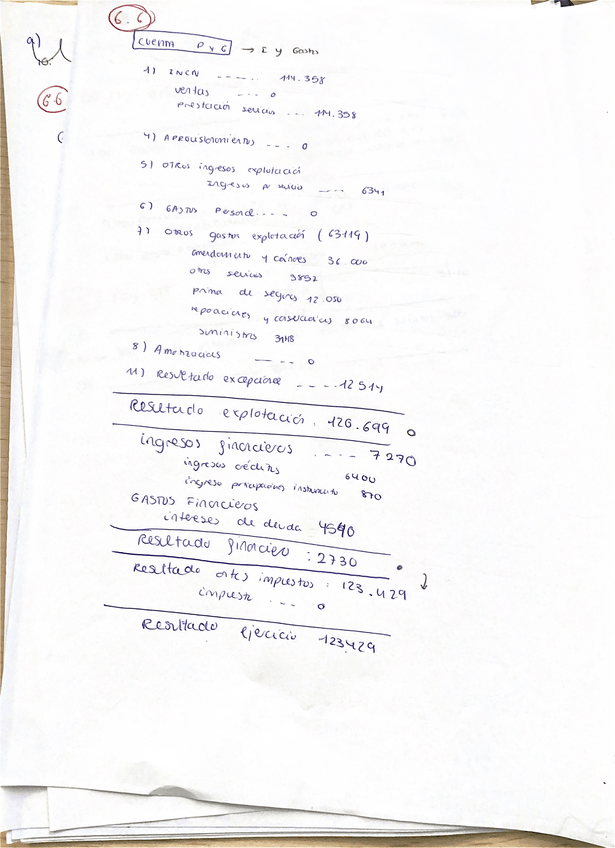 6.6
a)
6.6
CUENTA P y G → I y Gastos
1) INCN ----- 114.358
ventas --- 0
prestación servicios --- 114.358
4) APROVISIONAMIENTOS --- 0
5) OTROS ingresos explotación
Ingresos por servicio ---- 6341
6) GASTOS Personal ---- 0
7) OTROS gastos explotación (63119)
arrendamiento y cánones 36.000
otros servicios 3852
prima de seguros 12.050
reparaciones y conservación 8064
suministros 3148
8) Amortizacion ---- 0
11) Resultado excepcional ---- 12514
Resultado explotación: 120.699
ingresos financieros ---- 7270
ingresos créditos 6400
ingreso participaciones instrumento 870
GASTOS Financieros
intereses de deuda 4540
Resultado financiero : 2730
Resultado antes impuestos : 123.429
impuesto --- 0
Resultado ejercicio 123429